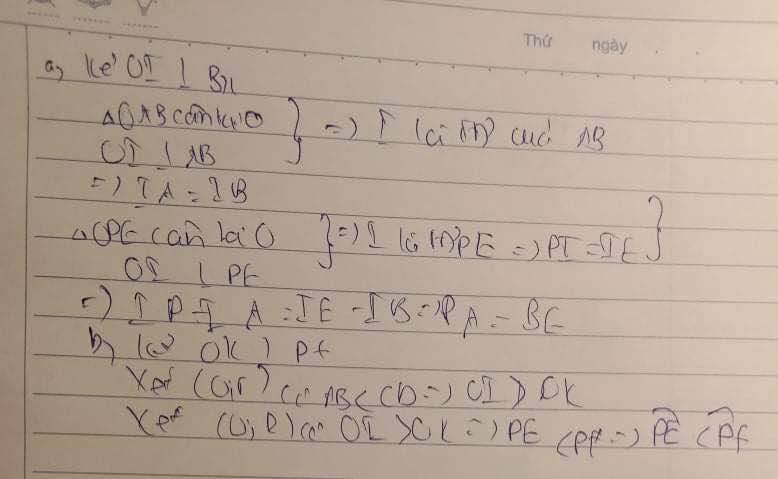 Thứ ngày . .
a, Kẻ OI ⊥
ΔOAB cân tại O } => I là trđ của AB
OI ⊥ AB
=> IA = IB
ΔOPE cân tại O } => I là PE => PI = IE }
OI ⊥ PE
=> IP - IA = IE - IB => PA = BE
b, Kẻ OK ⊥ PF
Xét (O;r) có AB < CD => OI > OK
Xét (O;R) có OI > OK => PE < PF => PE < PF